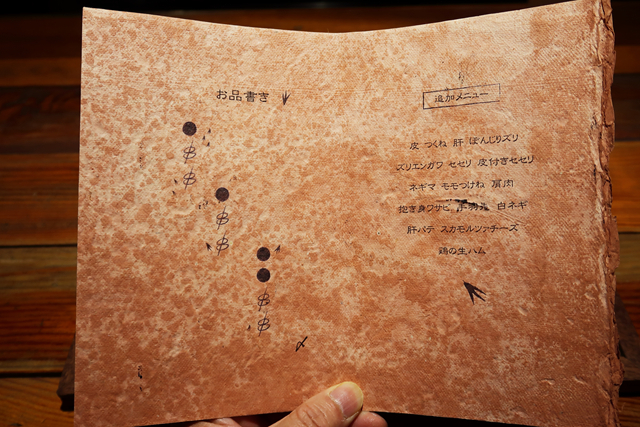 お品書き
追加メニュー
皮 つくね 肝 ぼんじりズリ
ズリエンガワ セセリ 皮付きセセリ
ネギマ モモつけね 肩肉
抱き身ワサビ 白ネギ
肝パテ スカモルツァチーズ
鶏の生ハム
〆